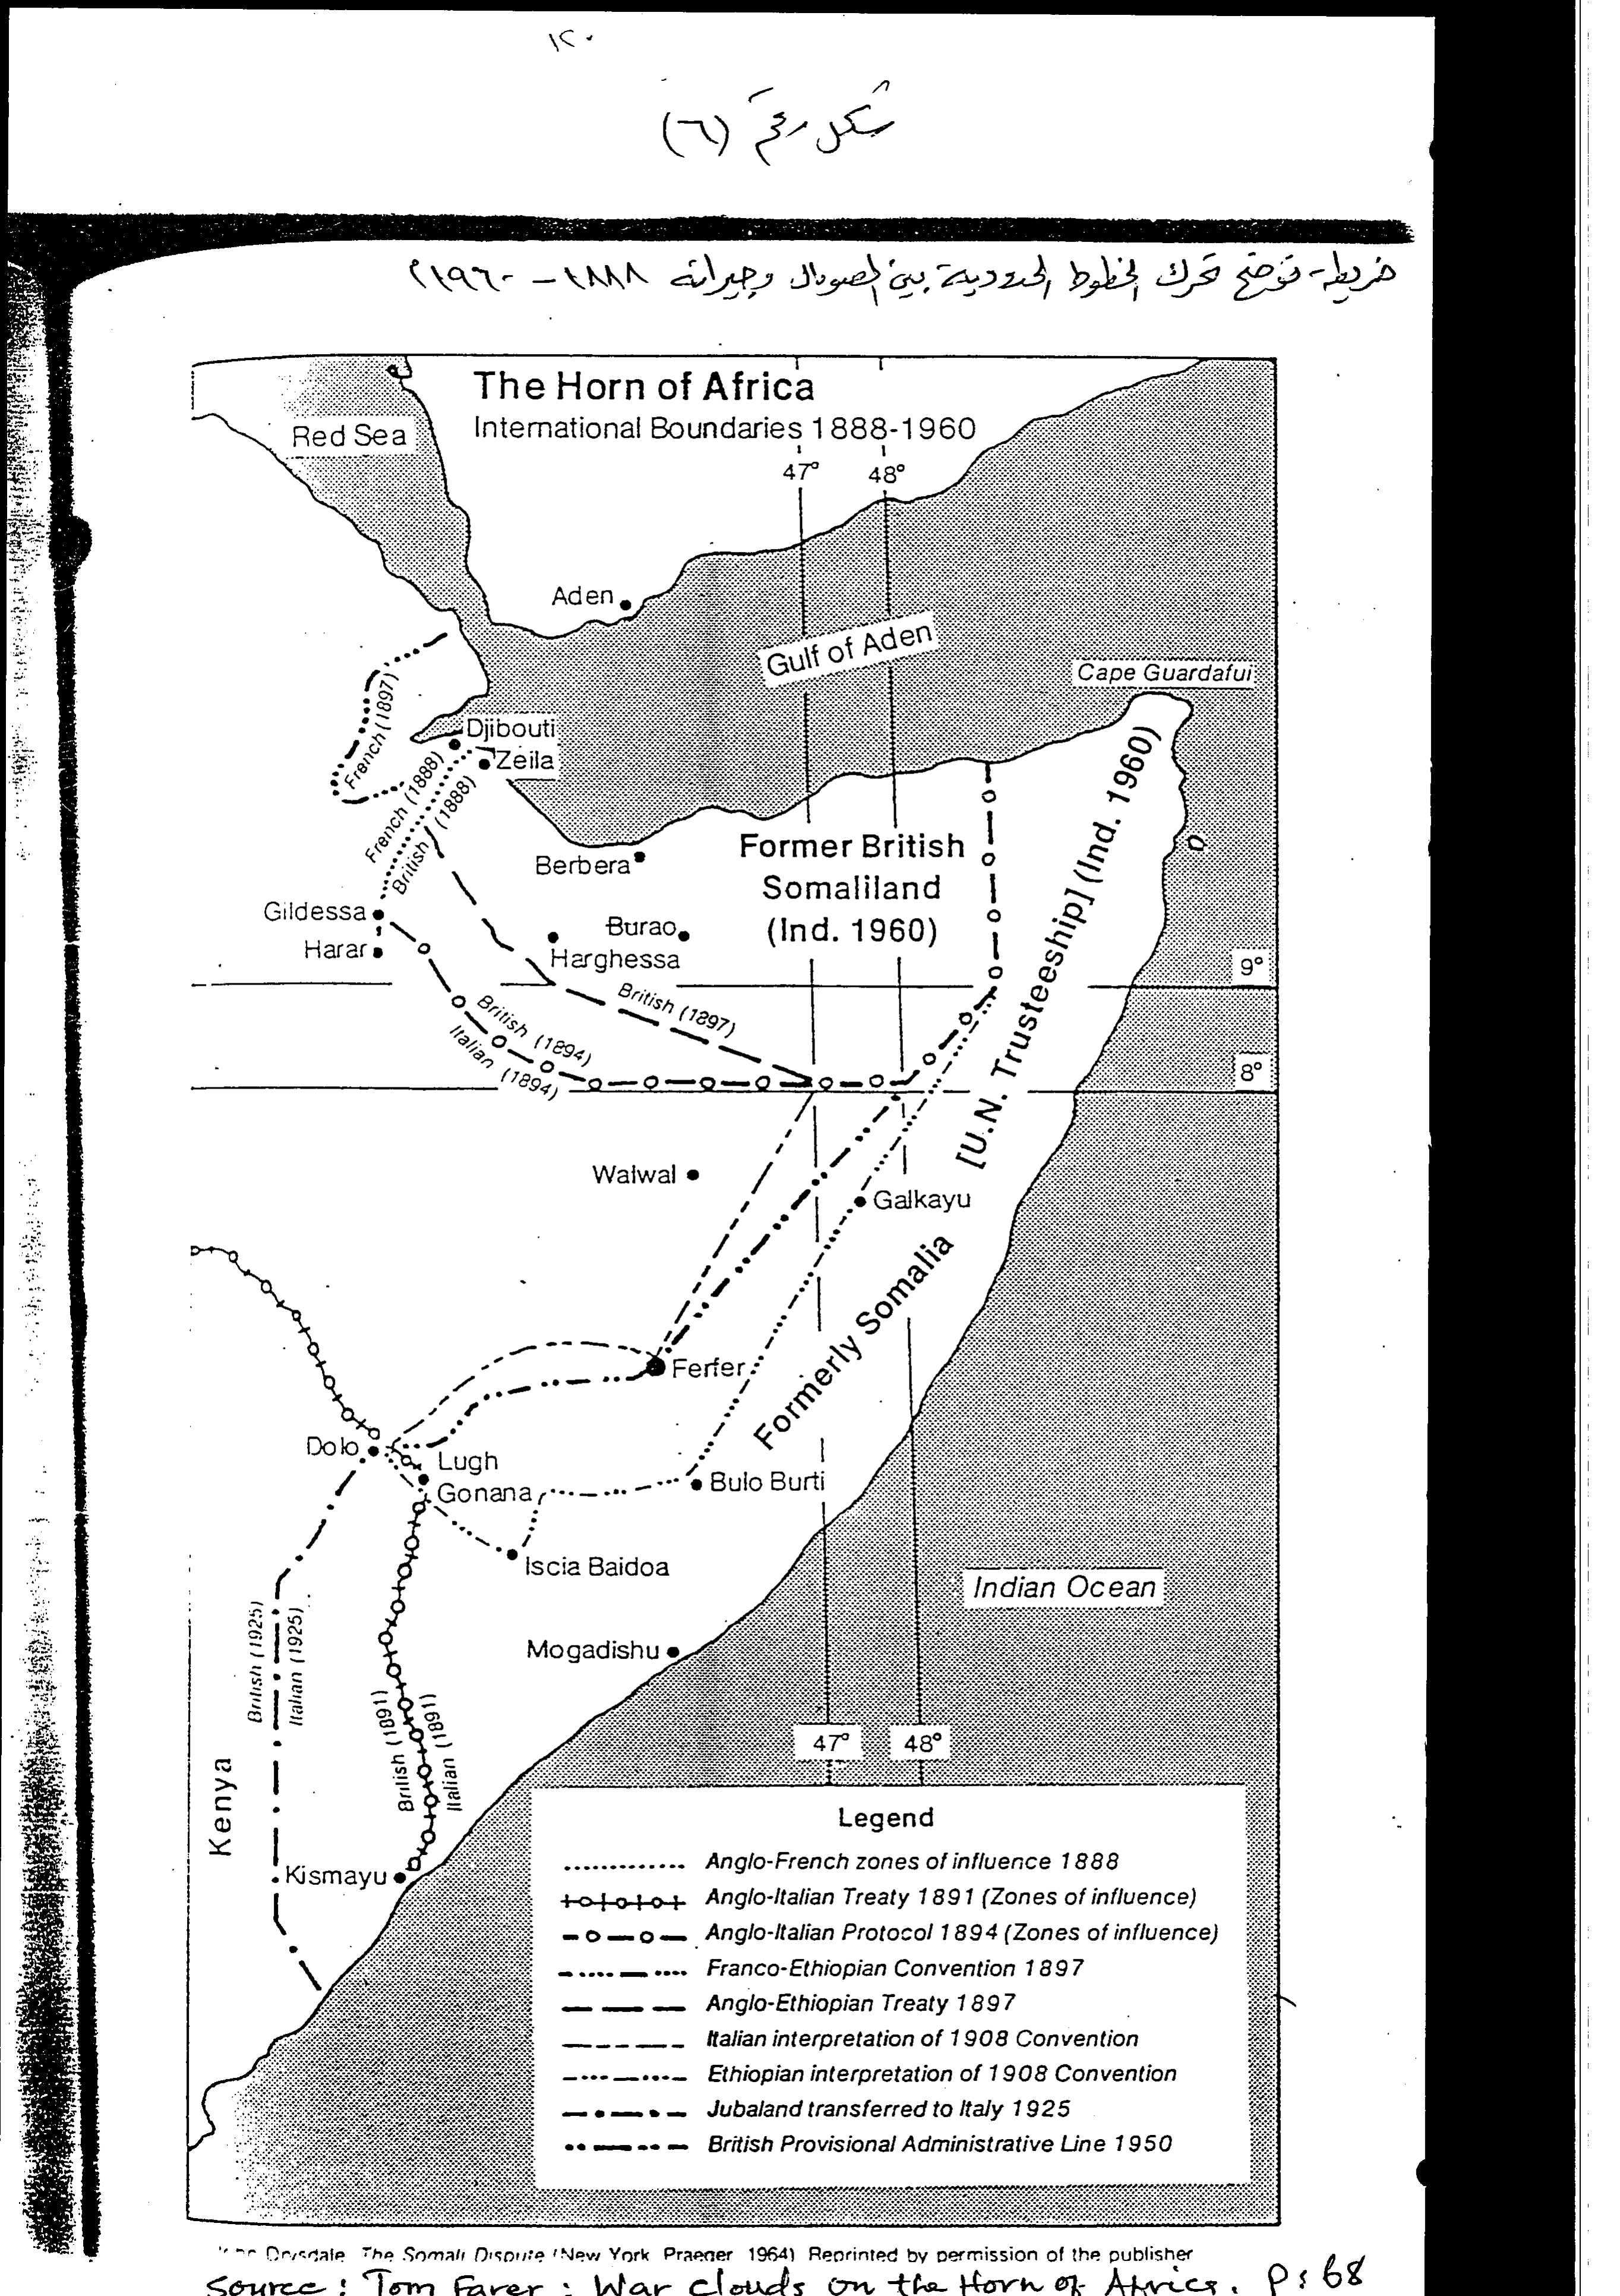 ١٢٠
شكل رقم (٦)
خريطة توضح تحرك الخطوط الحدودية بين الصومال وجيرانه ١٨٨٨ - ١٩٦٠م
The Horn of Africa
International Boundaries 1888-1960
Red Sea
47° 48°
Aden
Gulf of Aden
Cape Guardafui
French (1897)
Djibouti
Zeila
French (1888)
British (1888)
Berbera
Former British
Somaliland
(Ind. 1960)
Gildessa
Harar
Burao
Harghessa
9°
British (1897)
British (1894)
Italian (1894)
8°
[U.N. Trusteeship] (Ind. 1960)
Walwal
Galkayu
Formerly Somalia
Ferfer
Dolo
Lugh
Gonana
Bulo Burti
Iscia Baidoa
Indian Ocean
British (1925)
Italian (1925)
Mogadishu
British (1891)
Italian (1891)
47° 48°
Kenya
Kismayu
Legend
Anglo-French zones of influence 1888
Anglo-Italian Treaty 1891 (Zones of influence)
Anglo-Italian Protocol 1894 (Zones of influence)
Franco-Ethiopian Convention 1897
Anglo-Ethiopian Treaty 1897
Italian interpretation of 1908 Convention
Ethiopian interpretation of 1908 Convention
Jubaland transferred to Italy 1925
British Provisional Administrative Line 1950
Drysdale The Somali Dispute (New York Praeger 1964) Reprinted by permission of the publisher
Source : Tom Farer : War clouds on the Horn of Africa. P: 68